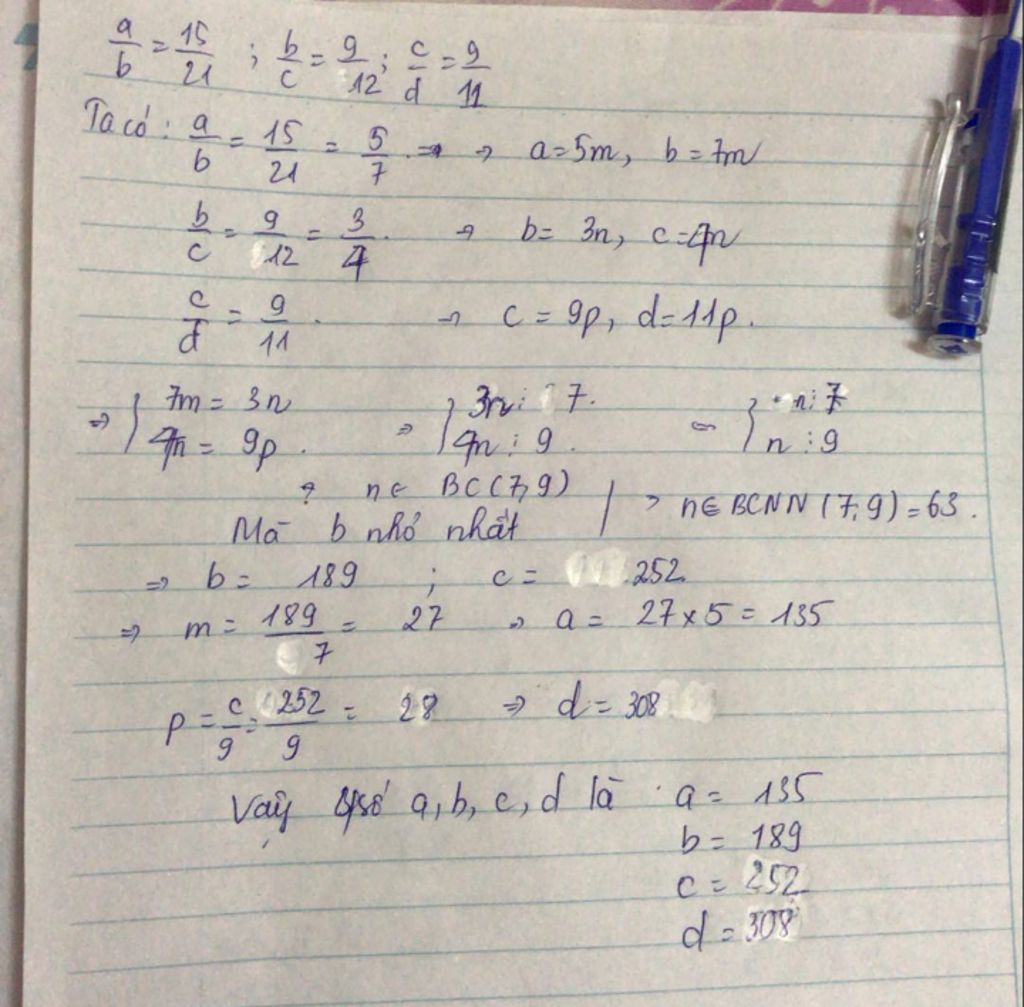 a/b = 15/21 ; b/c = 9/12 ; c/d = 9/11
Ta có : a/b = 15/21 = 5/7 . => → a = 5m, b = 7m
b/c = 9/12 = 3/4 . → b = 3n, c = 4n
c/d = 9/11 . → c = 9p, d = 11p.
=> { 7m = 3n => { 3n ⋮ 7. <=> { n ⋮ 7
4n = 9p . 4n ⋮ 9 . n ⋮ 9
→ n ∈ BC(7,9)
Mà b nhỏ nhất | → n ∈ BCNN (7;9) = 63.
=> b = 189 ; c = 252
=> m = 189/7 = 27 → a = 27 × 5 = 135
p = c/9 = 252/9 = 28 => d = 308
Vậy 4 số a, b, c, d là a = 135
b = 189
c = 252
d = 308